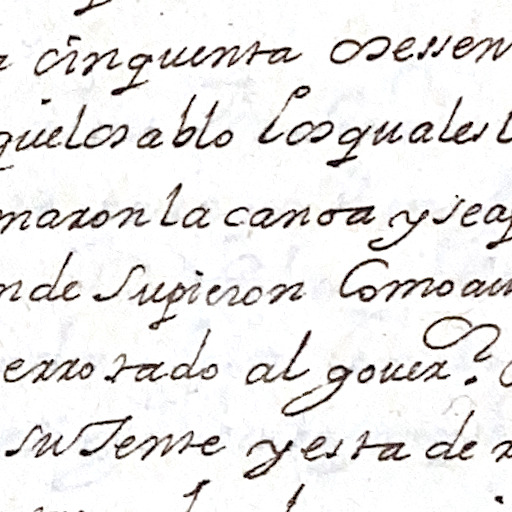 cinquenta osessen
quelosablo Losquales
maron la canoa y seap
nde supieron Como au
errotado al gouer.
su Jente y esta de